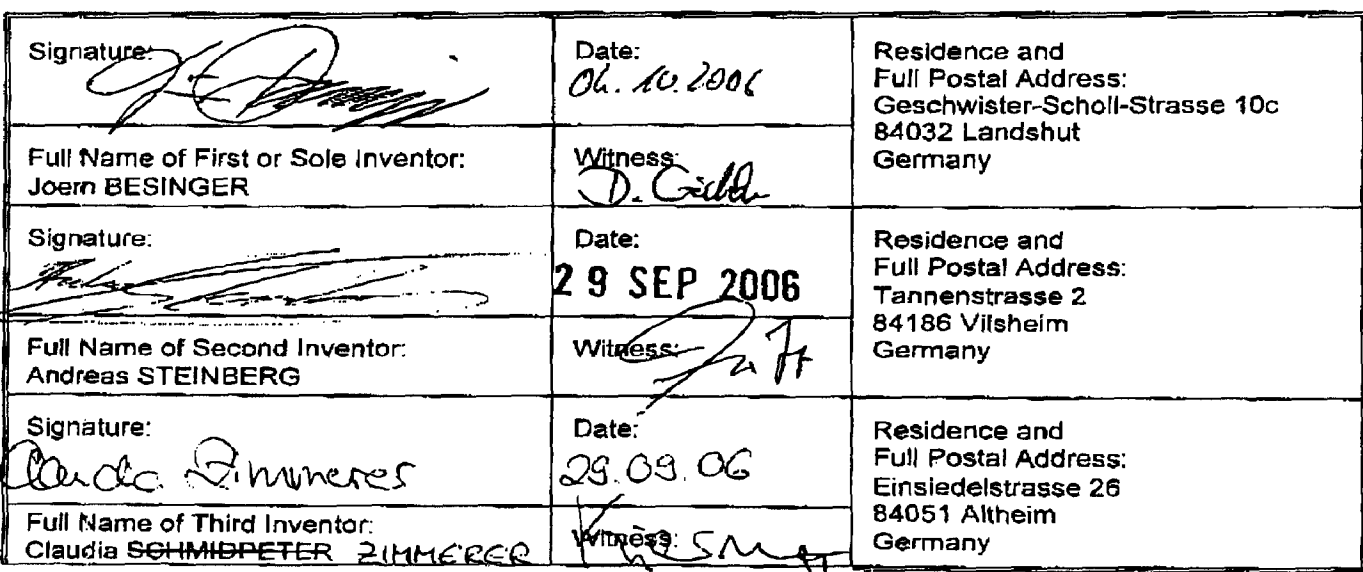 Signature:
Date:
04.10.2006
Residence and
Full Postal Address:
Geschwister-Scholl-Strasse 10c
84032 Landshut
Germany
Full Name of First or Sole Inventor:
Joern BESINGER
Witness:
D.
Signature:
Date:
29 SEP 2006
Residence and
Full Postal Address:
Tannenstrasse 2
84186 Vilsheim
Germany
Full Name of Second Inventor:
Andreas STEINBERG
Witness:
Signature:
Claudia Zimmerer
Date:
29.09.06
Residence and
Full Postal Address:
Einsiedelstrasse 26
84051 Altheim
Germany
Full Name of Third Inventor:
Claudia SCHMIDPETER ZIMMERER
Witness: